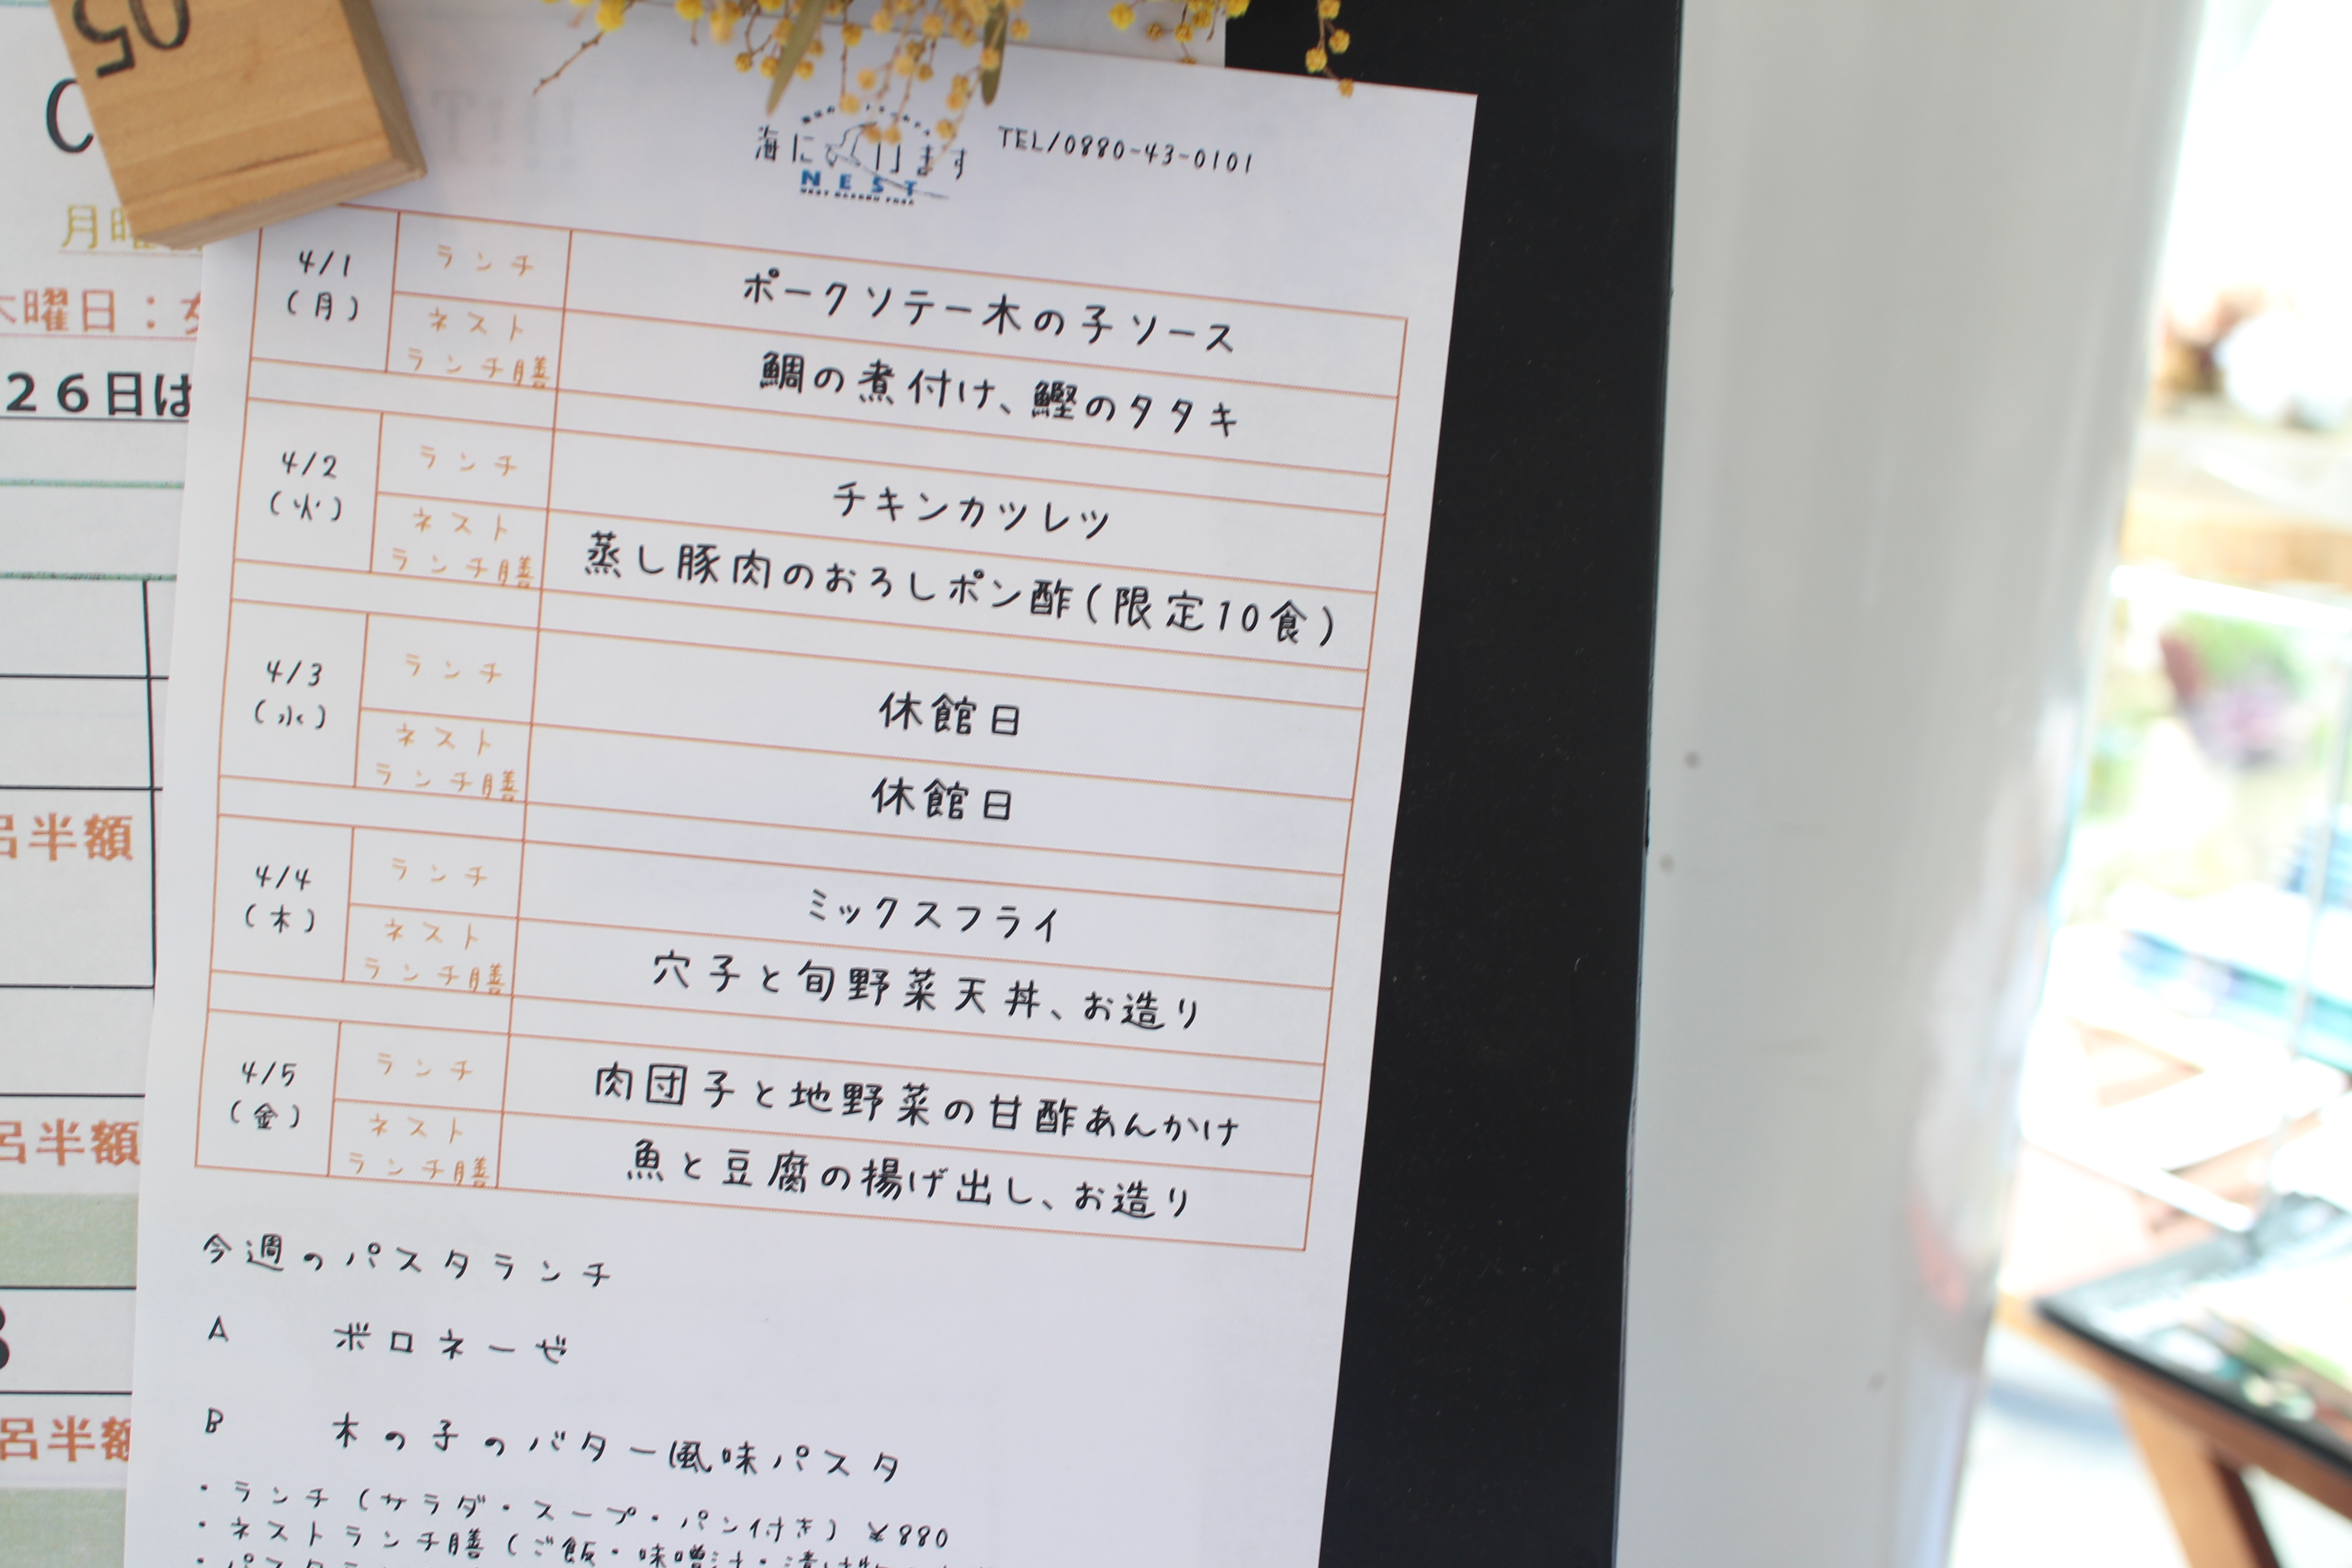 05
月曜
木曜日：
26日は
呂半額
呂半額
呂半額
海に
ます
NEST
TEL/0880-43-0101
4/1
(月)
ランチ
ポークソテー木の子ソース
ネスト
ランチ膳
鯛の煮付け、鰹のタタキ
4/2
(火)
ランチ
チキンカツレツ
ネスト
ランチ膳
蒸し豚肉のおろしポン酢(限定10食)
4/3
(水)
ランチ
休館日
ネスト
ランチ膳
休館日
4/4
(木)
ランチ
ミックスフライ
ネスト
ランチ膳
穴子と旬野菜天丼、お造り
4/5
(金)
ランチ
肉団子と地野菜の甘酢あんかけ
ネスト
ランチ膳
魚と豆腐の揚げ出し、お造り
今週のパスタランチ
A ボロネーゼ
B 木の子のバター風味パスタ
・ランチ(サラダ・スープ・パン付き) ¥880
・ネストランチ膳(ご飯・味噌汁・漬け物